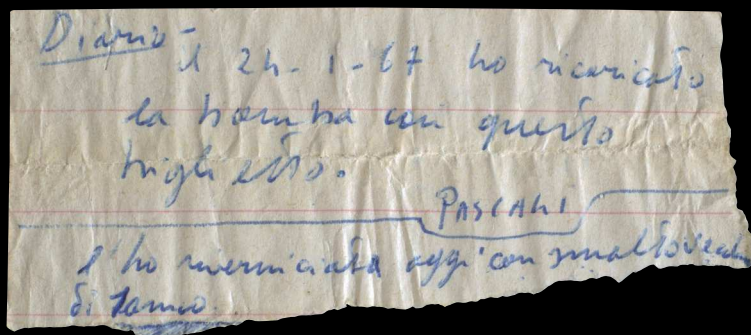 Diario -
il 24-1-67 ho ricaricato
la bomba con questo
biglietto.
PASCALI
l'ho riverniciata oggi con smalto
di